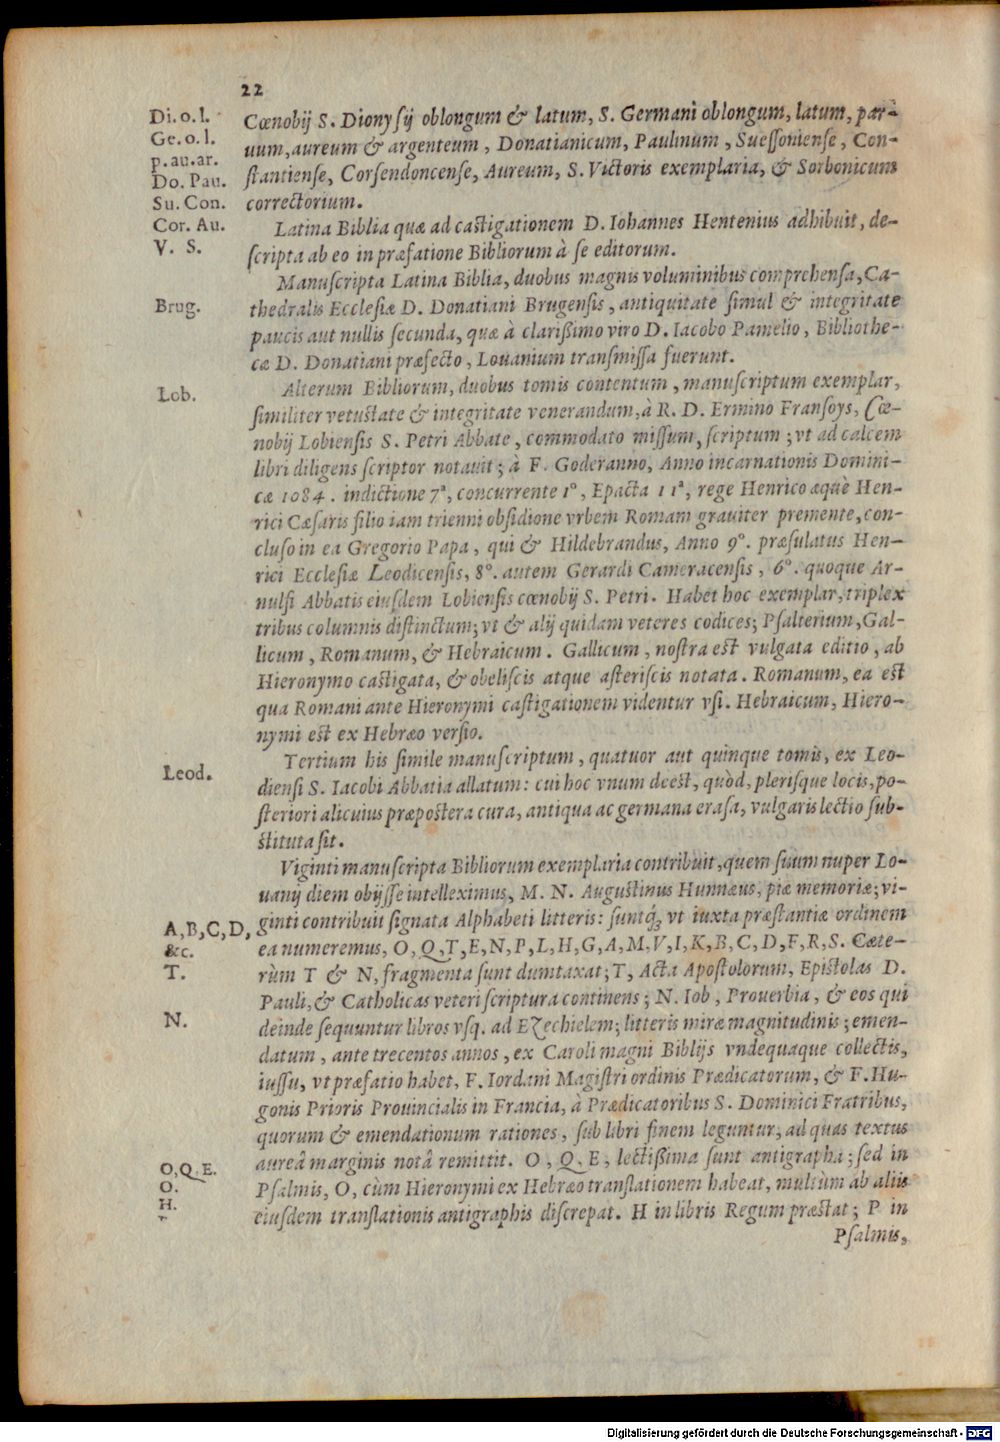 22
Di. o. l.
Ge. o. l.
p. au. ar.
Do. Pau.
Su. Con.
Cor. Au.
V. S.
Cœnobij S. Dionyſij oblongum & latum, S. Germani oblongum, latum, par-
uum, aureum & argenteum, Donatianicum, Paulinum, Sueſſonienſe, Con-
ſtantienſe, Corſendoncenſe, Aureum, S. Victoris exemplaria, & Sorbonicum
correctorium.
Latina Biblia quæ ad caſtigationem D. Iohannes Hentenius adhibuit, de-
ſcripta ab eo in præfatione Bibliorum à ſe editorum.
Manuſcripta Latina Biblia, duobus magnis voluminibus comprehenſa, Ca-
Brug.
thedralis Eccleſiæ D. Donatiani Brugenſis, antiquitate ſimul & integritate
paucis aut nullis ſecunda, quæ à clarißimo viro D. Iacobo Pamelio, Bibliothe-
cæ D. Donatiani præfecto, Louanium tranſmiſſa fuerunt.
Lob.
Alterum Bibliorum, duobus tomis contentum, manuſcriptum exemplar,
ſimiliter vetuſtate & integritate venerandum, à R. D. Ermino Franſoys, Cœ-
nobij Lobienſis S. Petri Abbate, commodato miſſum, ſcriptum; vt ad calcem
libri diligens ſcriptor notauit; à F. Goderanno, Anno incarnationis Domini-
cæ 1084. indictione 7ª, concurrente 1º, Epacta 11ª, rege Henrico æquè Hen-
rici Cæſaris filio iam trienni obſidione vrbem Romam grauiter premente, con-
cluſo in ea Gregorio Papa, qui & Hildebrandus, Anno 9º. præſulatus Hen-
rici Eccleſiæ Leodicenſis, 8º. autem Gerardi Cameracenſis, 6º. quoque Ar-
nulfi Abbatis eiuſdem Lobienſis cœnobij S. Petri. Habet hoc exemplar, triplex
tribus columnis diſtinctum; vt & alij quidam veteres codices; Pſalterium, Gal-
licum, Romanum, & Hebraicum. Gallicum, noſtra eſt vulgata editio, ab
Hieronymo caſtigata, & obeliſcis atque aſteriſcis notata. Romanum, ea eſt
qua Romani ante Hieronymi caſtigationem videntur vſi. Hebraicum, Hiero-
nymi eſt ex Hebræo verſio.
Leod.
Tertium his ſimile manuſcriptum, quatuor aut quinque tomis, ex Leo-
dienſi S. Iacobi Abbatia allatum: cui hoc vnum deeſt, quòd, pleriſque locis, po-
ſteriori alicuius præpoſtera cura, antiqua ac germana eraſa, vulgaris lectio ſub-
ſtituta ſit.
Viginti manuſcripta Bibliorum exemplaria contribuit, quem ſuum nuper Lo-
uanij diem obijſſe intelleximus, M. N. Auguſtinus Hunnæus, piæ memoriæ; vi-
A, B, C, D,
&c.
ginti contribuit ſignata Alphabeti litteris: ſuntq́;, vt iuxta præſtantiæ ordinem
ea numeremus, O, Q, T, E, N, P, L, H, G, A, M, V, I, K, B, C, D, F, R, S. Cæte-
T.
rùm T & N, fragmenta ſunt dumtaxat; T, Acta Apoſtolorum, Epiſtolas D.
Pauli, & Catholicas veteri ſcriptura continens; N. Iob, Prouerbia, & eos qui
N.
deinde ſequuntur libros vſq. ad Ezechielem; litteris miræ magnitudinis; emen-
datum, ante trecentos annos, ex Caroli magni Biblijs vndequaque collectis,
iuſſu, vt præfatio habet, F. Iordani Magiſtri ordinis Prædicatorum, & F. Hu-
gonis Prioris Prouincialis in Francia, à Prædicatoribus S. Dominici Fratribus,
quorum & emendationum rationes, ſub libri finem leguntur, ad quas textus
O, Q, E.
aureâ marginis notâ remittit. O, Q, E, lectißima ſunt antigrapha; ſed in
O.
Pſalmis, O, cùm Hieronymi ex Hebræo tranſlationem habeat, multùm ab alijs
H.
eiuſdem tranſlationis antigraphis diſcrepat. H in libris Regum præſtat; P in
Pſalmis,
Digitalisierung gefördert durch die Deutsche Forschungsgemeinschaft - DFG